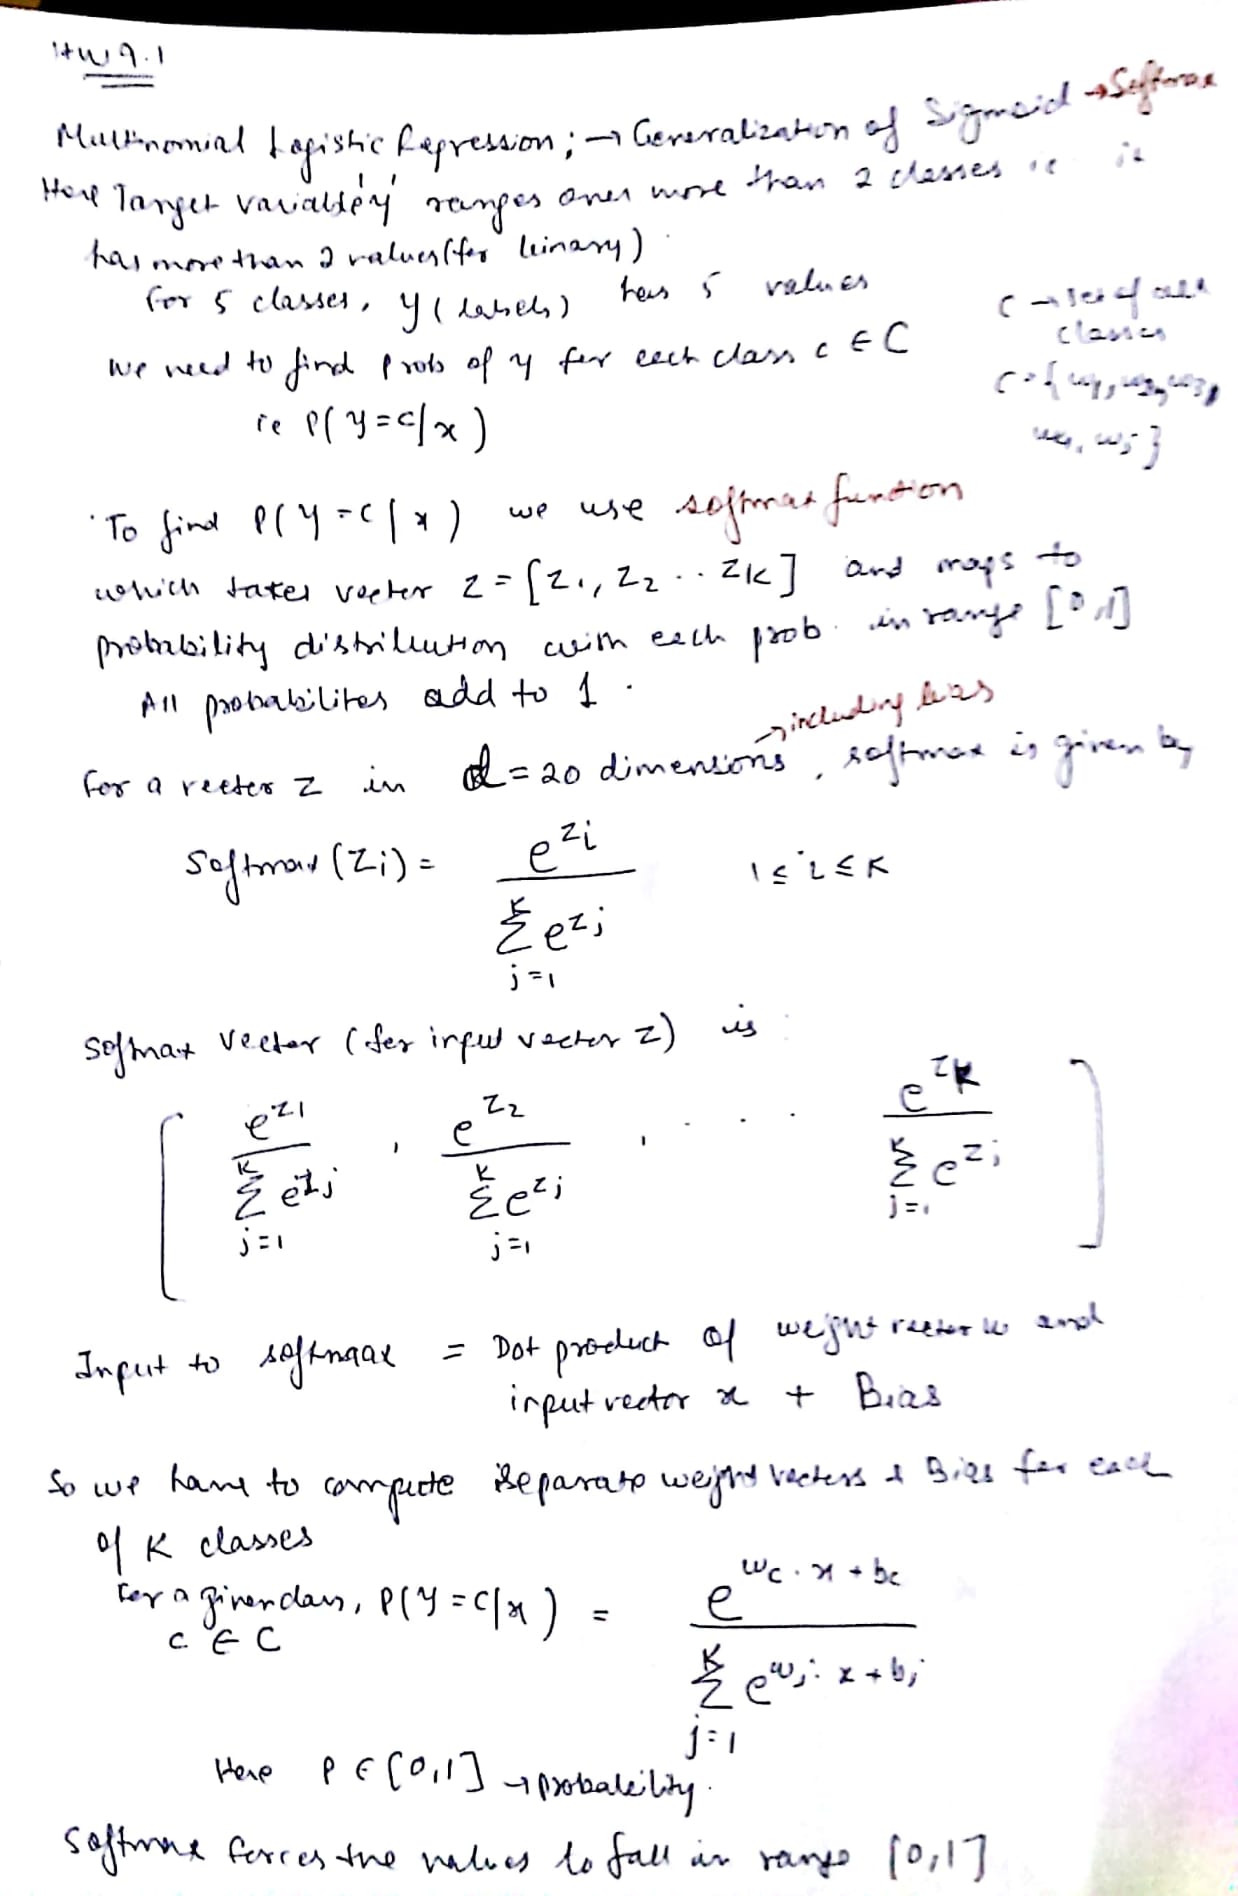 HW 9.1
Multinomial Logistic Regression; → Generalization of Sigmoid → Softmax
Here Target variable 'y' ranges over more than 2 classes ie it
has more than 2 values (for binary).
For 5 classes, y (labels) has 5 values
C → set of all
classes
We need to find prob of y for each class c ∈ C
C = { w1, w2, w3,
w4, w5 }
ie P( y = c | x )
To find P( y = c | x ) we use softmax function
which takes vector z = [ z1, z2 .. zk ] and maps to
probability distribution with each prob. in range [0,1]
All probabilites add to 1.
→ including bias
For a vector z in d = 20 dimensions, softmax is given by
Softmax (zi) = e^zi / Σ_{j=1}^{K} e^zj 1 ≤ i ≤ K
Softmax vector (for input vector z) is :
[ e^z1 / Σ_{j=1}^{K} e^zj , e^z2 / Σ_{j=1}^{K} e^zj , . . . e^zk / Σ_{j=1}^{K} e^zj ]
Input to softmax = Dot product of weight vector w and
input vector x + Bias
So we have to compute separate weight vectors & Bias for each
of K classes
For a given class, P( y = c | x ) = e^{wc . x + bc} / Σ_{j=1}^{K} e^{wj . x + bj}
c ∈ C
Here P ∈ [0,1] → probability.
Softmax forces the values to fall in range [0,1]